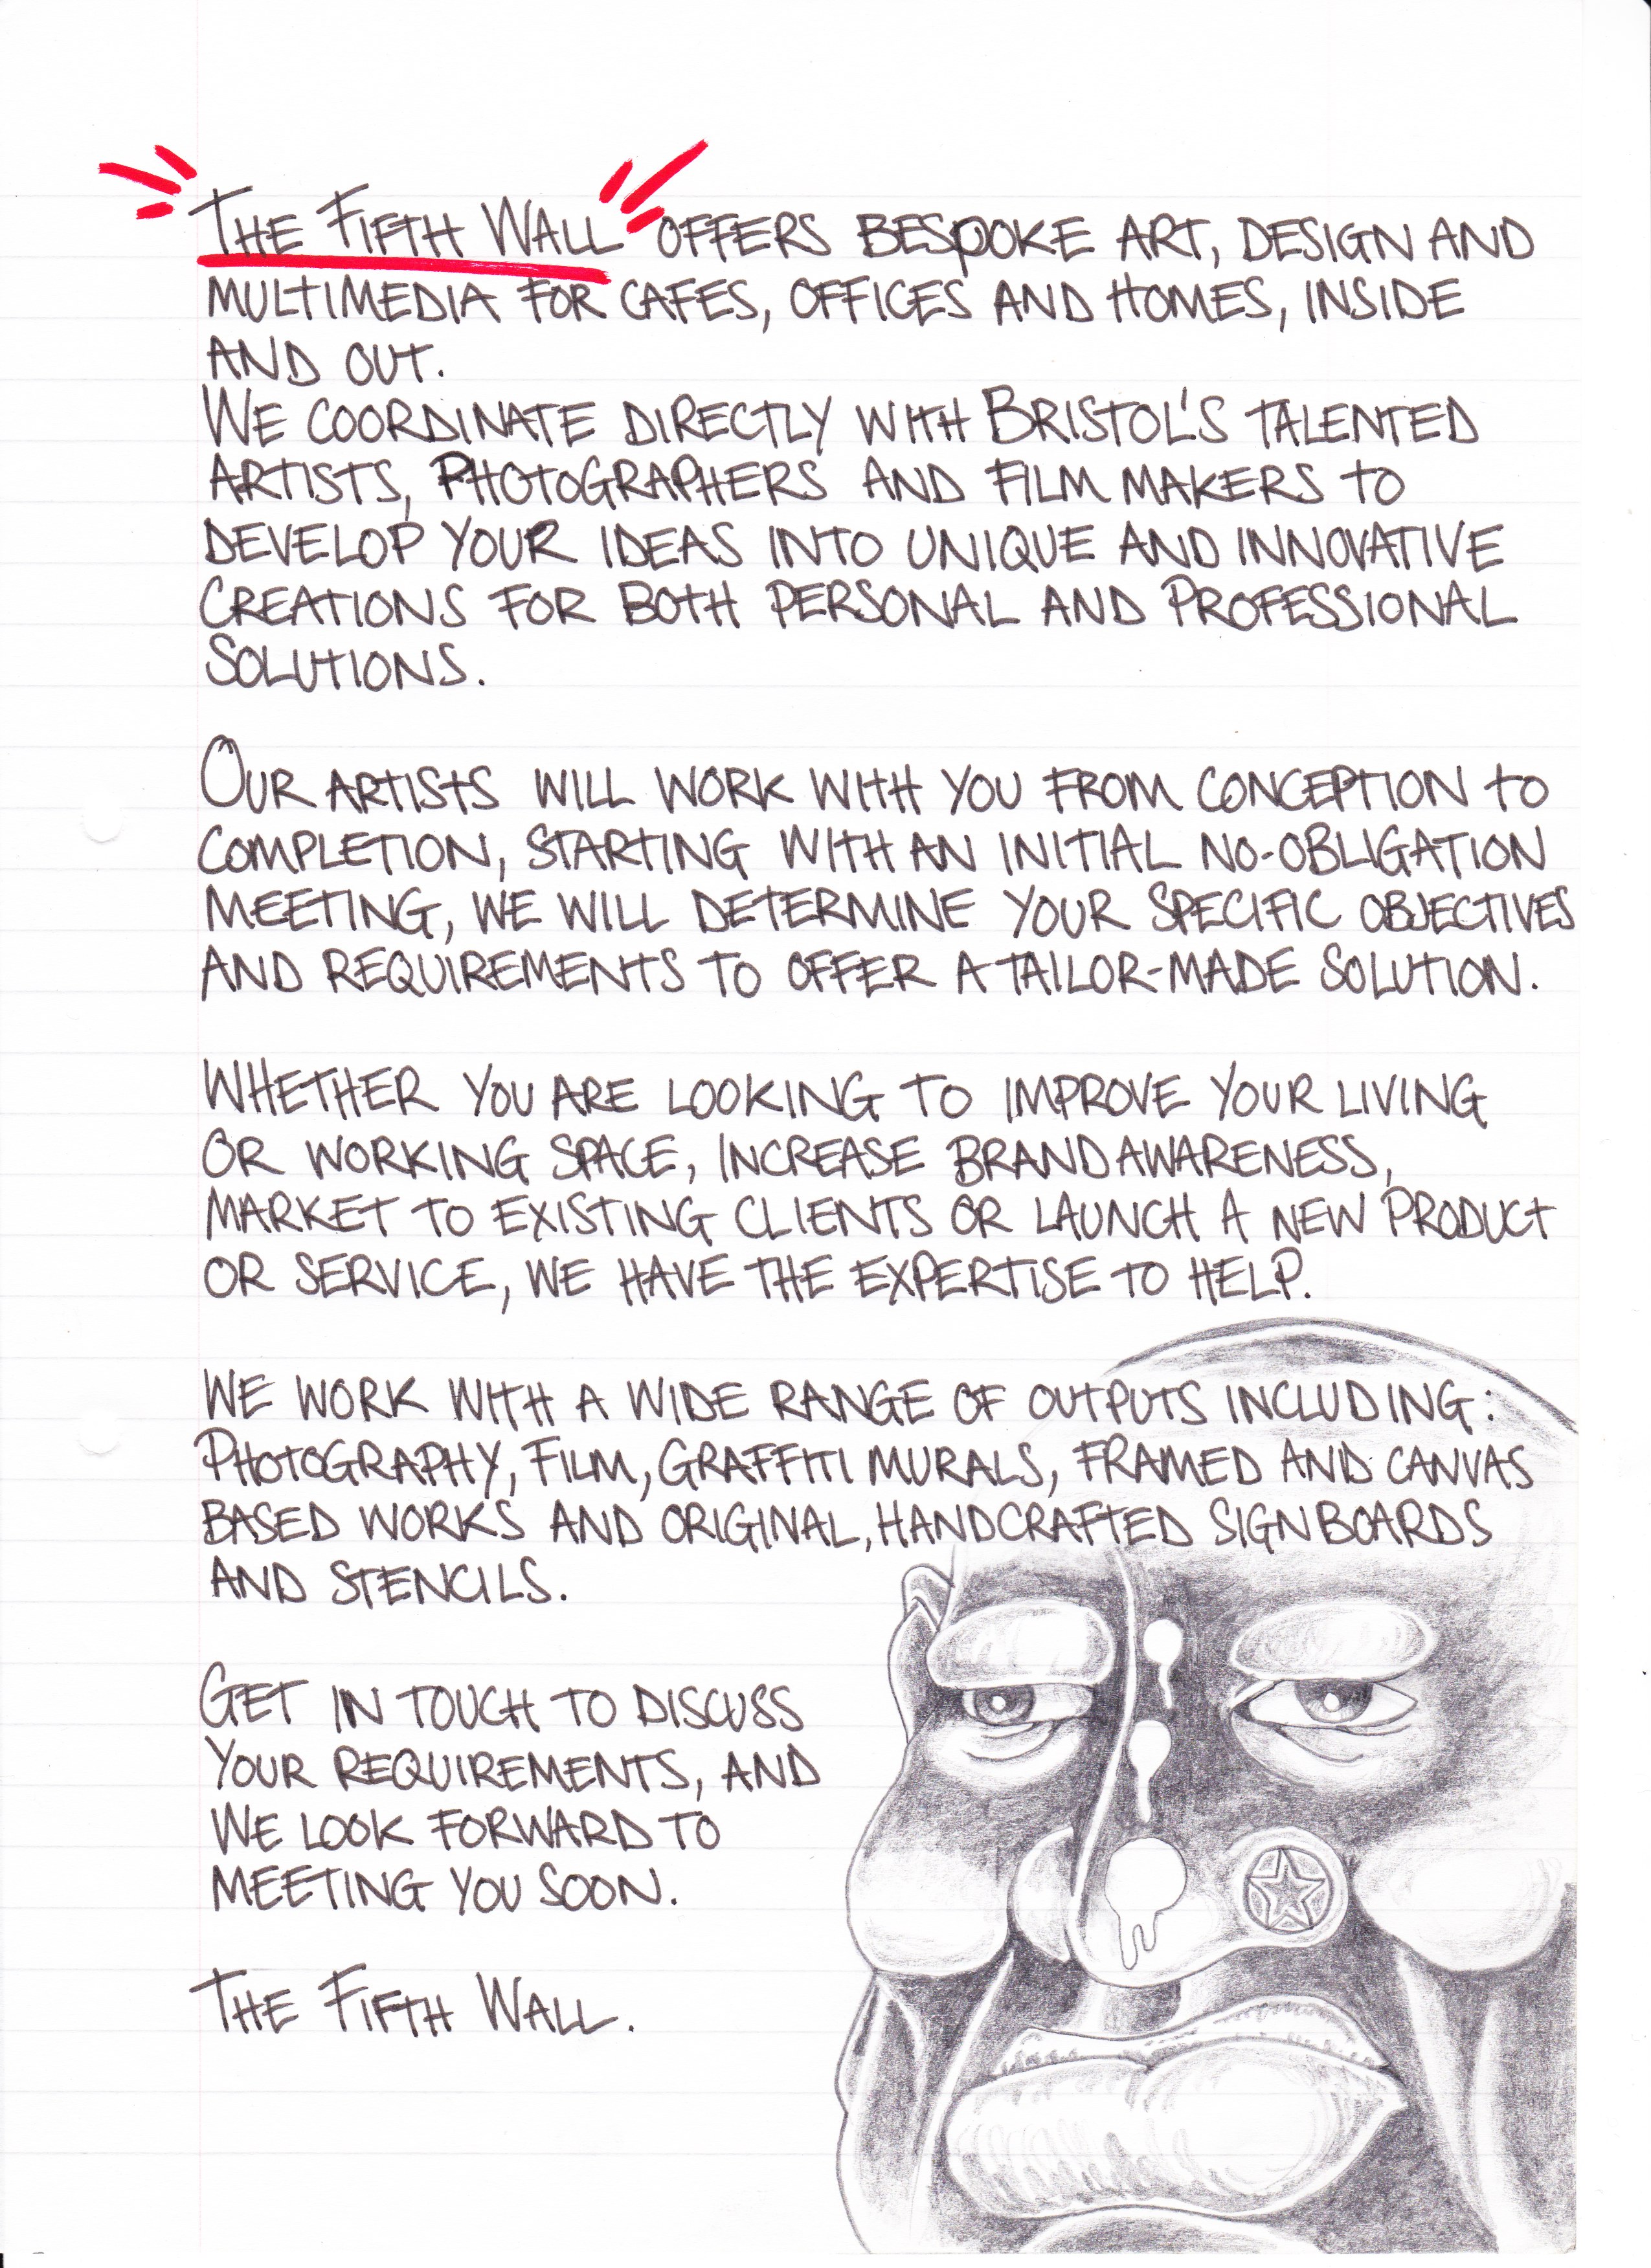 THE FIFTH WALL OFFERS BESPOKE ART, DESIGN AND
MULTIMEDIA FOR CAFES, OFFICES AND HOMES, INSIDE
AND OUT.
WE COORDINATE DIRECTLY WITH BRISTOL'S TALENTED
ARTISTS, PHOTOGRAPHERS AND FILM MAKERS TO
DEVELOP YOUR IDEAS INTO UNIQUE AND INNOVATIVE
CREATIONS FOR BOTH PERSONAL AND PROFESSIONAL
SOLUTIONS.
OUR ARTISTS WILL WORK WITH YOU FROM CONCEPTION TO
COMPLETION, STARTING WITH AN INITIAL NO-OBLIGATION
MEETING, WE WILL DETERMINE YOUR SPECIFIC OBJECTIVES
AND REQUIREMENTS TO OFFER A TAILOR-MADE SOLUTION.
WHETHER YOU ARE LOOKING TO IMPROVE YOUR LIVING
OR WORKING SPACE, INCREASE BRAND AWARENESS,
MARKET TO EXISTING CLIENTS OR LAUNCH A NEW PRODUCT
OR SERVICE, WE HAVE THE EXPERTISE TO HELP.
WE WORK WITH A WIDE RANGE OF OUTPUTS INCLUDING:
PHOTOGRAPHY, FILM, GRAFFITI MURALS, FRAMED AND CANVAS
BASED WORKS AND ORIGINAL, HANDCRAFTED SIGN BOARDS
AND STENCILS.
GET IN TOUCH TO DISCUSS
YOUR REQUIREMENTS, AND
WE LOOK FORWARD TO
MEETING YOU SOON.
THE FIFTH WALL.